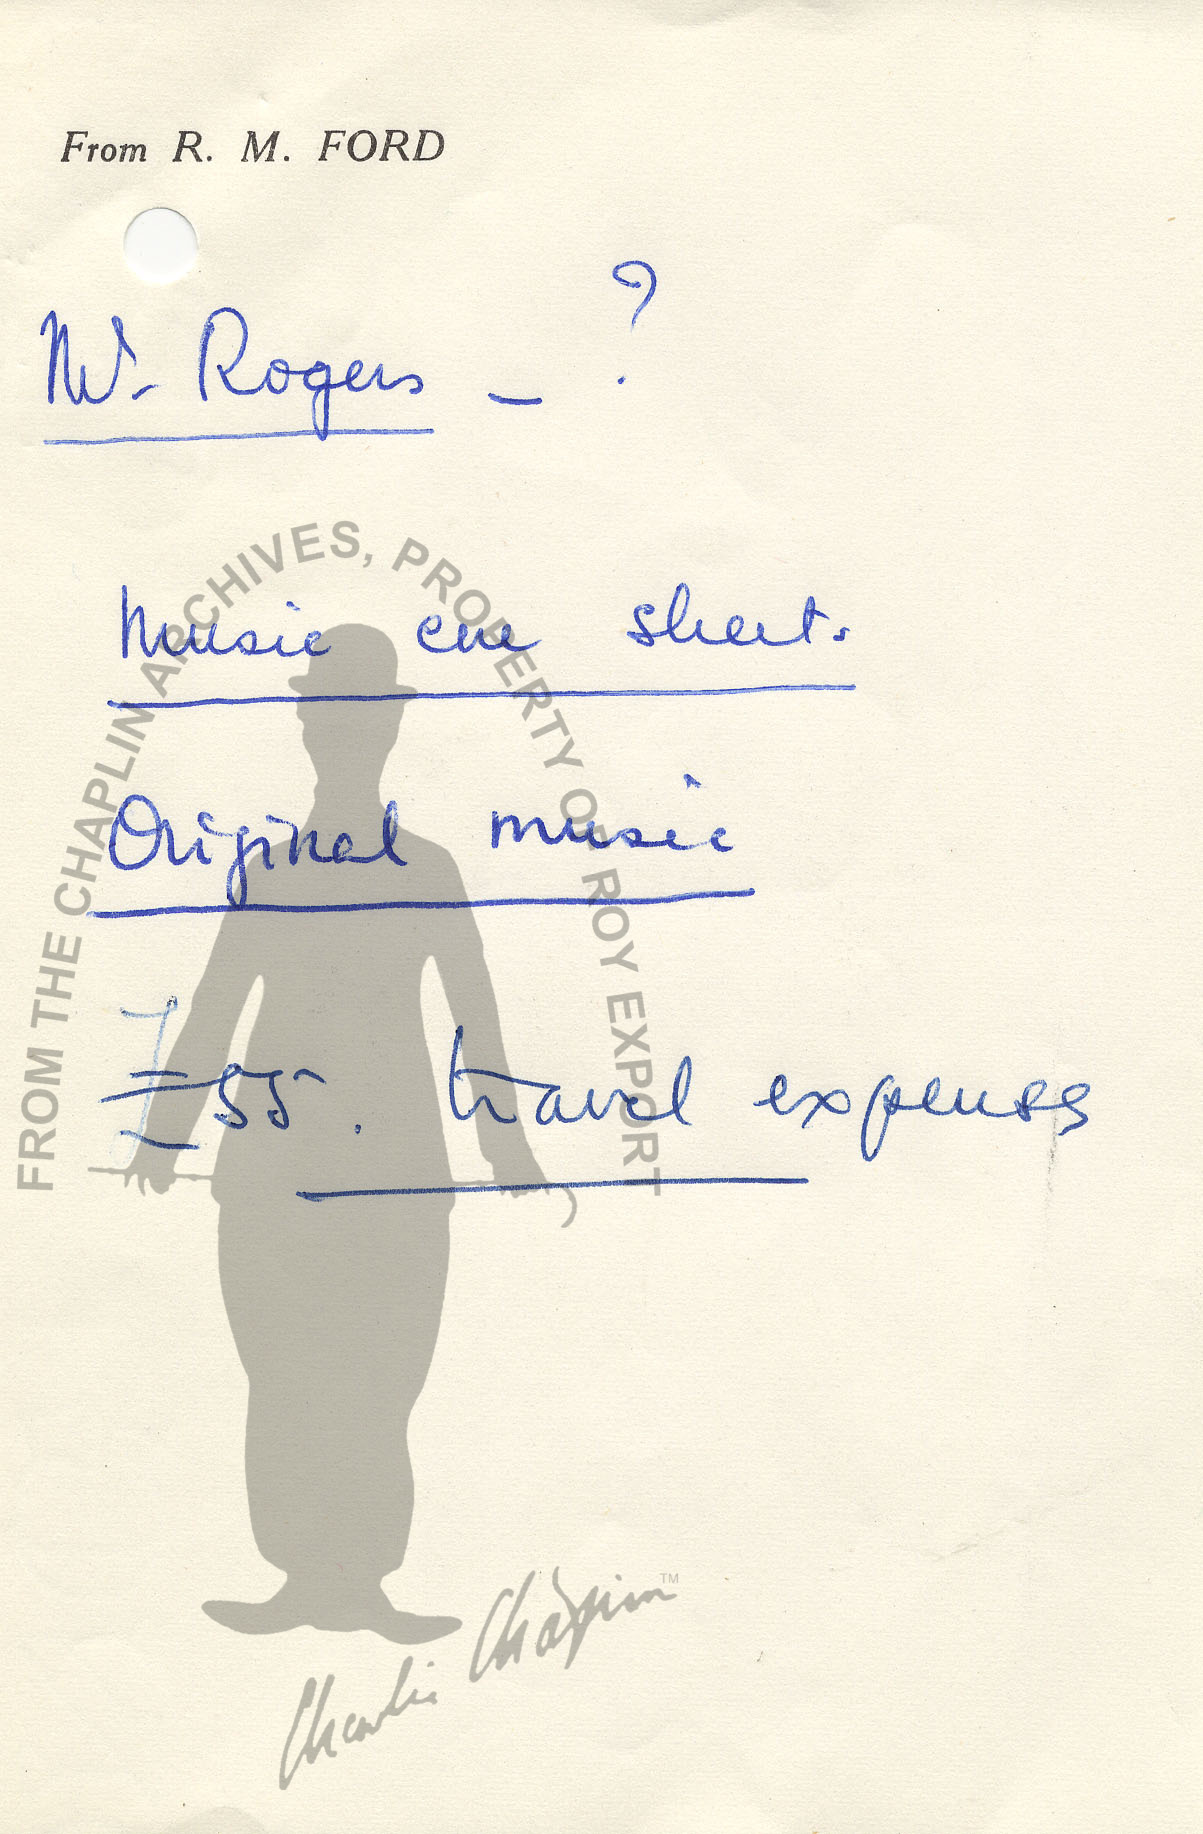 From R. M. FORD
Mr. Rogers - ?
Music cue sheet.
Original music
£55. travel expenses
FROM THE CHAPLIN ARCHIVES, PROPERTY OF ROY EXPORT
Charlie Chaplin™